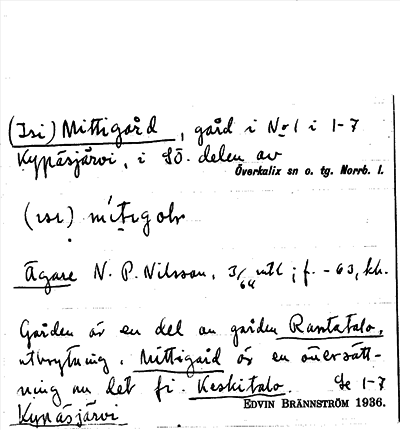 (Isi) Mittigård, gård i No 1 i 1-7
Kypäsjärvi, i SÖ. delen av
Överkalix sn o. tg. Norrb. l.
(ɪsɪ) mítɪgoḷr
Ägare N. P. Nilsson, 3/64 mtl; f. -63, kh.
Gården är en del av gården Rantatalo,
utbrytning. Mittigård är en översätt-
ning av det fi. Keskitalo. Se 1-7
Kypäsjärvi
EDVIN BRÄNNSTRÖM 1936.